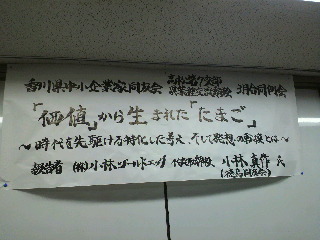 香川県中小企業家同友会 高松第7支部 3月合同例会
「価値」から生まれた「たまご」
〜時代を先駆ける特化した考え、そして発想の転換とは〜
報告者 (株)小林ゴールドエッグ 代表取締役 小林 真作 氏
(徳島同友会)